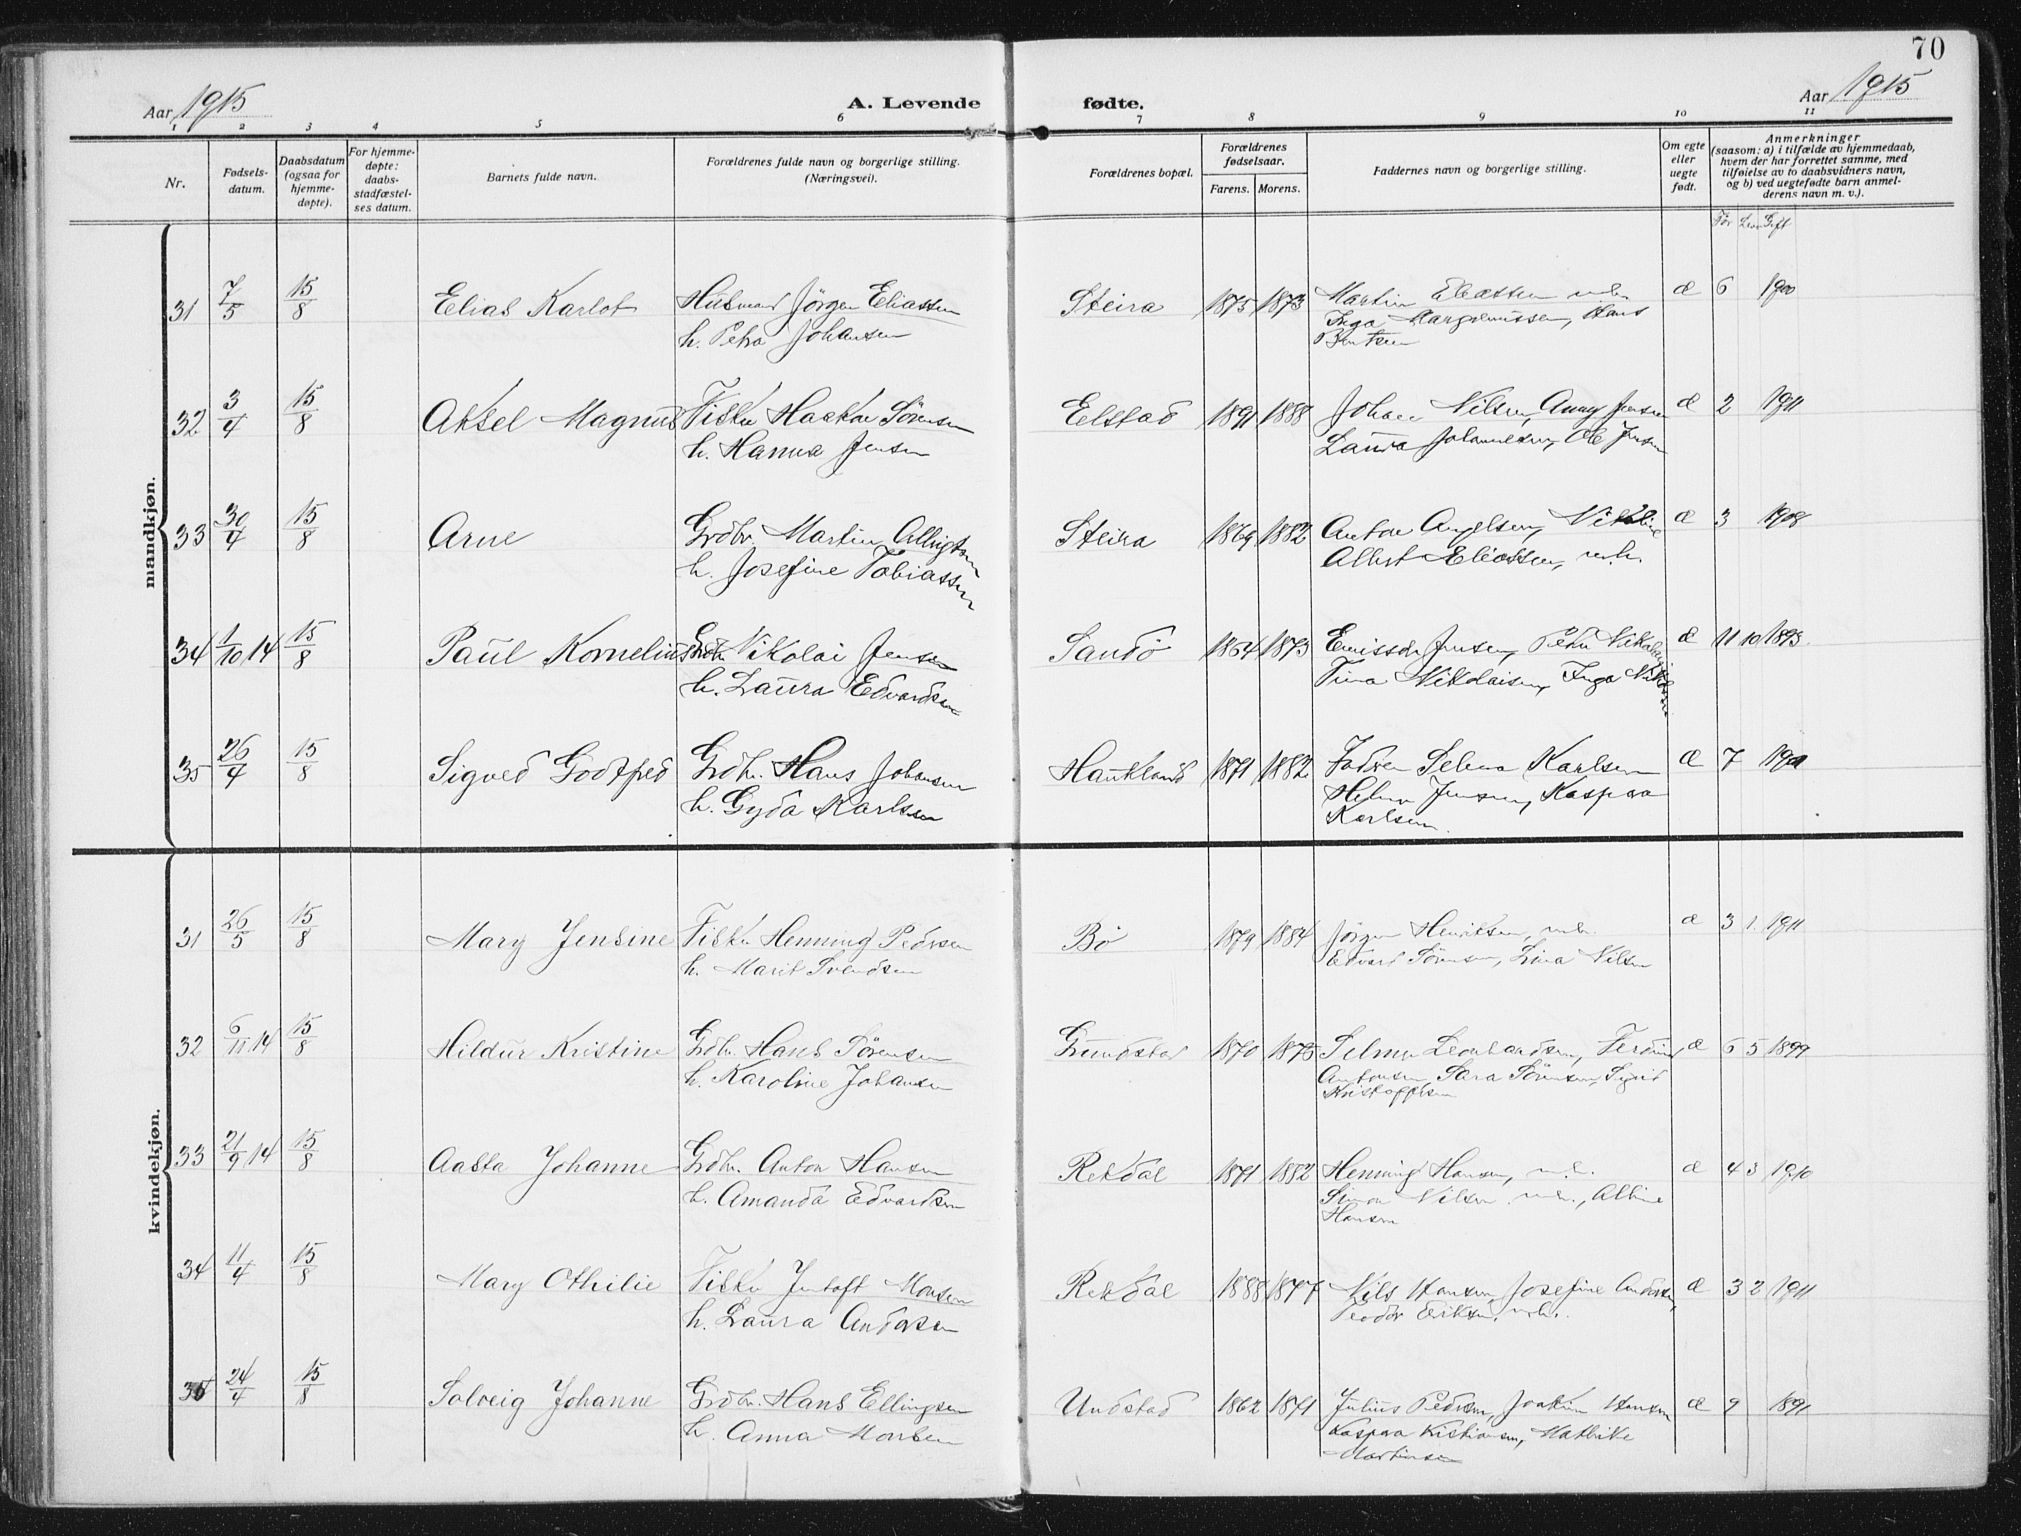 70
Aar 1915
A. Levende fødte.
Aar 1915
1 2 3 4 5 6 7 8 9 10 11
Nr.
Fødsels-
datum.
Daabsdatum
(ogsaa for
hjemme-
døpte).
For hjemme-
døpte:
daabs-
stadfæstel-
ses datum.
Barnets fulde navn.
Forældrenes fulde navn og borgerlige stilling.
(Næringsvei).
Forældrenes bopæl.
Forældrenes
fødselsaar.
Farens. Morens.
Faddernes navn og borgerlige stilling.
Om egte
eller
uegte
født.
Anmerkninger
(saasom: a) i tilfælde av hjemmedaab,
hvem der har forrettet samme, med
tilføielse av to daabsvidners navn,
og b) ved uegtefødte barn anmel-
derens navn m. v.).
Før Gift
mandkjøn.
31 7/5 15/8 Elias Karlot Husmand Jörgen Eliassen Steira 1875 1873 Martin Eliassen m.h. æ 6 1900
h. Petra Johansen Inga Hans
Bentsen
32 3/4 15/8 Aksel Magnus Fisker Haakon Sörensen Elstad 1891 1888 Johan Nilsen, Anny Jensen æ 2 1911
h. Hanna Jensen Laura Johannesen, Ole Jensen
33 30/4 15/8 Arne Grdbr. Martin Steira 1869 1882 Anton Angelsen, Nikoline æ 3 1908
h. Josefine Tobiassen Albert Eliassen, m.h.
34 1/10 14 15/8 Paul Kornelius Grdbr. Nikolai Jensen Sandö 1864 1873 Jensen, Peder Nikolaisen æ 11 10 1893
h. Laura Edvardsen Tina Nikolaisen, Inga
35 26/4 15/8 Sigved Godtfred Grdbr. Hans Johansen Haukland 1871 1882 Fadren Selma Karlsen æ 7
h. Gyda Karlsen Helma Jensen, Kaspara
Karlsen
kvindekjøn.
31 26/5 15/8 Mary Jensine Fisker Henning Pedersen Bö 1879 1884 Jörgen Henriksen, m.h. æ 3 1. 1911
h. Marit Svendsen Edvard Sörensen, Lina Nilsen
32 6/11 14 15/8 Hildur Kristine Grdbr. Hans Sörensen Grundstad 1870 1875 Selma Leonhardsen, Ferdinand æ 6 5 1899
h. Karoline Johansen Antonsen Sara Sörensen, Sigrid
Kristoffersen
33 21/9 14 15/8 Aasta Johanne Grdbr. Anton Hansen Rekdal 1871 1882 Henning Hansen, m.h. æ 4 3 1910
h. Amanda Edvardsen Simon Nilsen m.h., Albine
Hansen
34 11/4 15/8 Mary Othilie Fisker Jentoft Monsen Rekdal 1888 1877 Nils Hansen, Josefine Andersen, æ 3 2 1911
h. Laura Andersen Peder Eriksen, m.h.
35 24/4 15/8 Solveig Johanne Grdbr. Hans Ellingsen Undstad 1862 1871 Julius Pedersen, Joakim Hansen æ 9 1891
h. Anna Monsen Kaspara Kistiansen, Mathilde
Martinsen